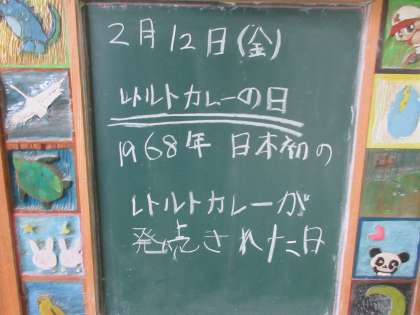 2月12日(金)
レトルトカレーの日
1968年 日本初の
レトルトカレーが
発売された日